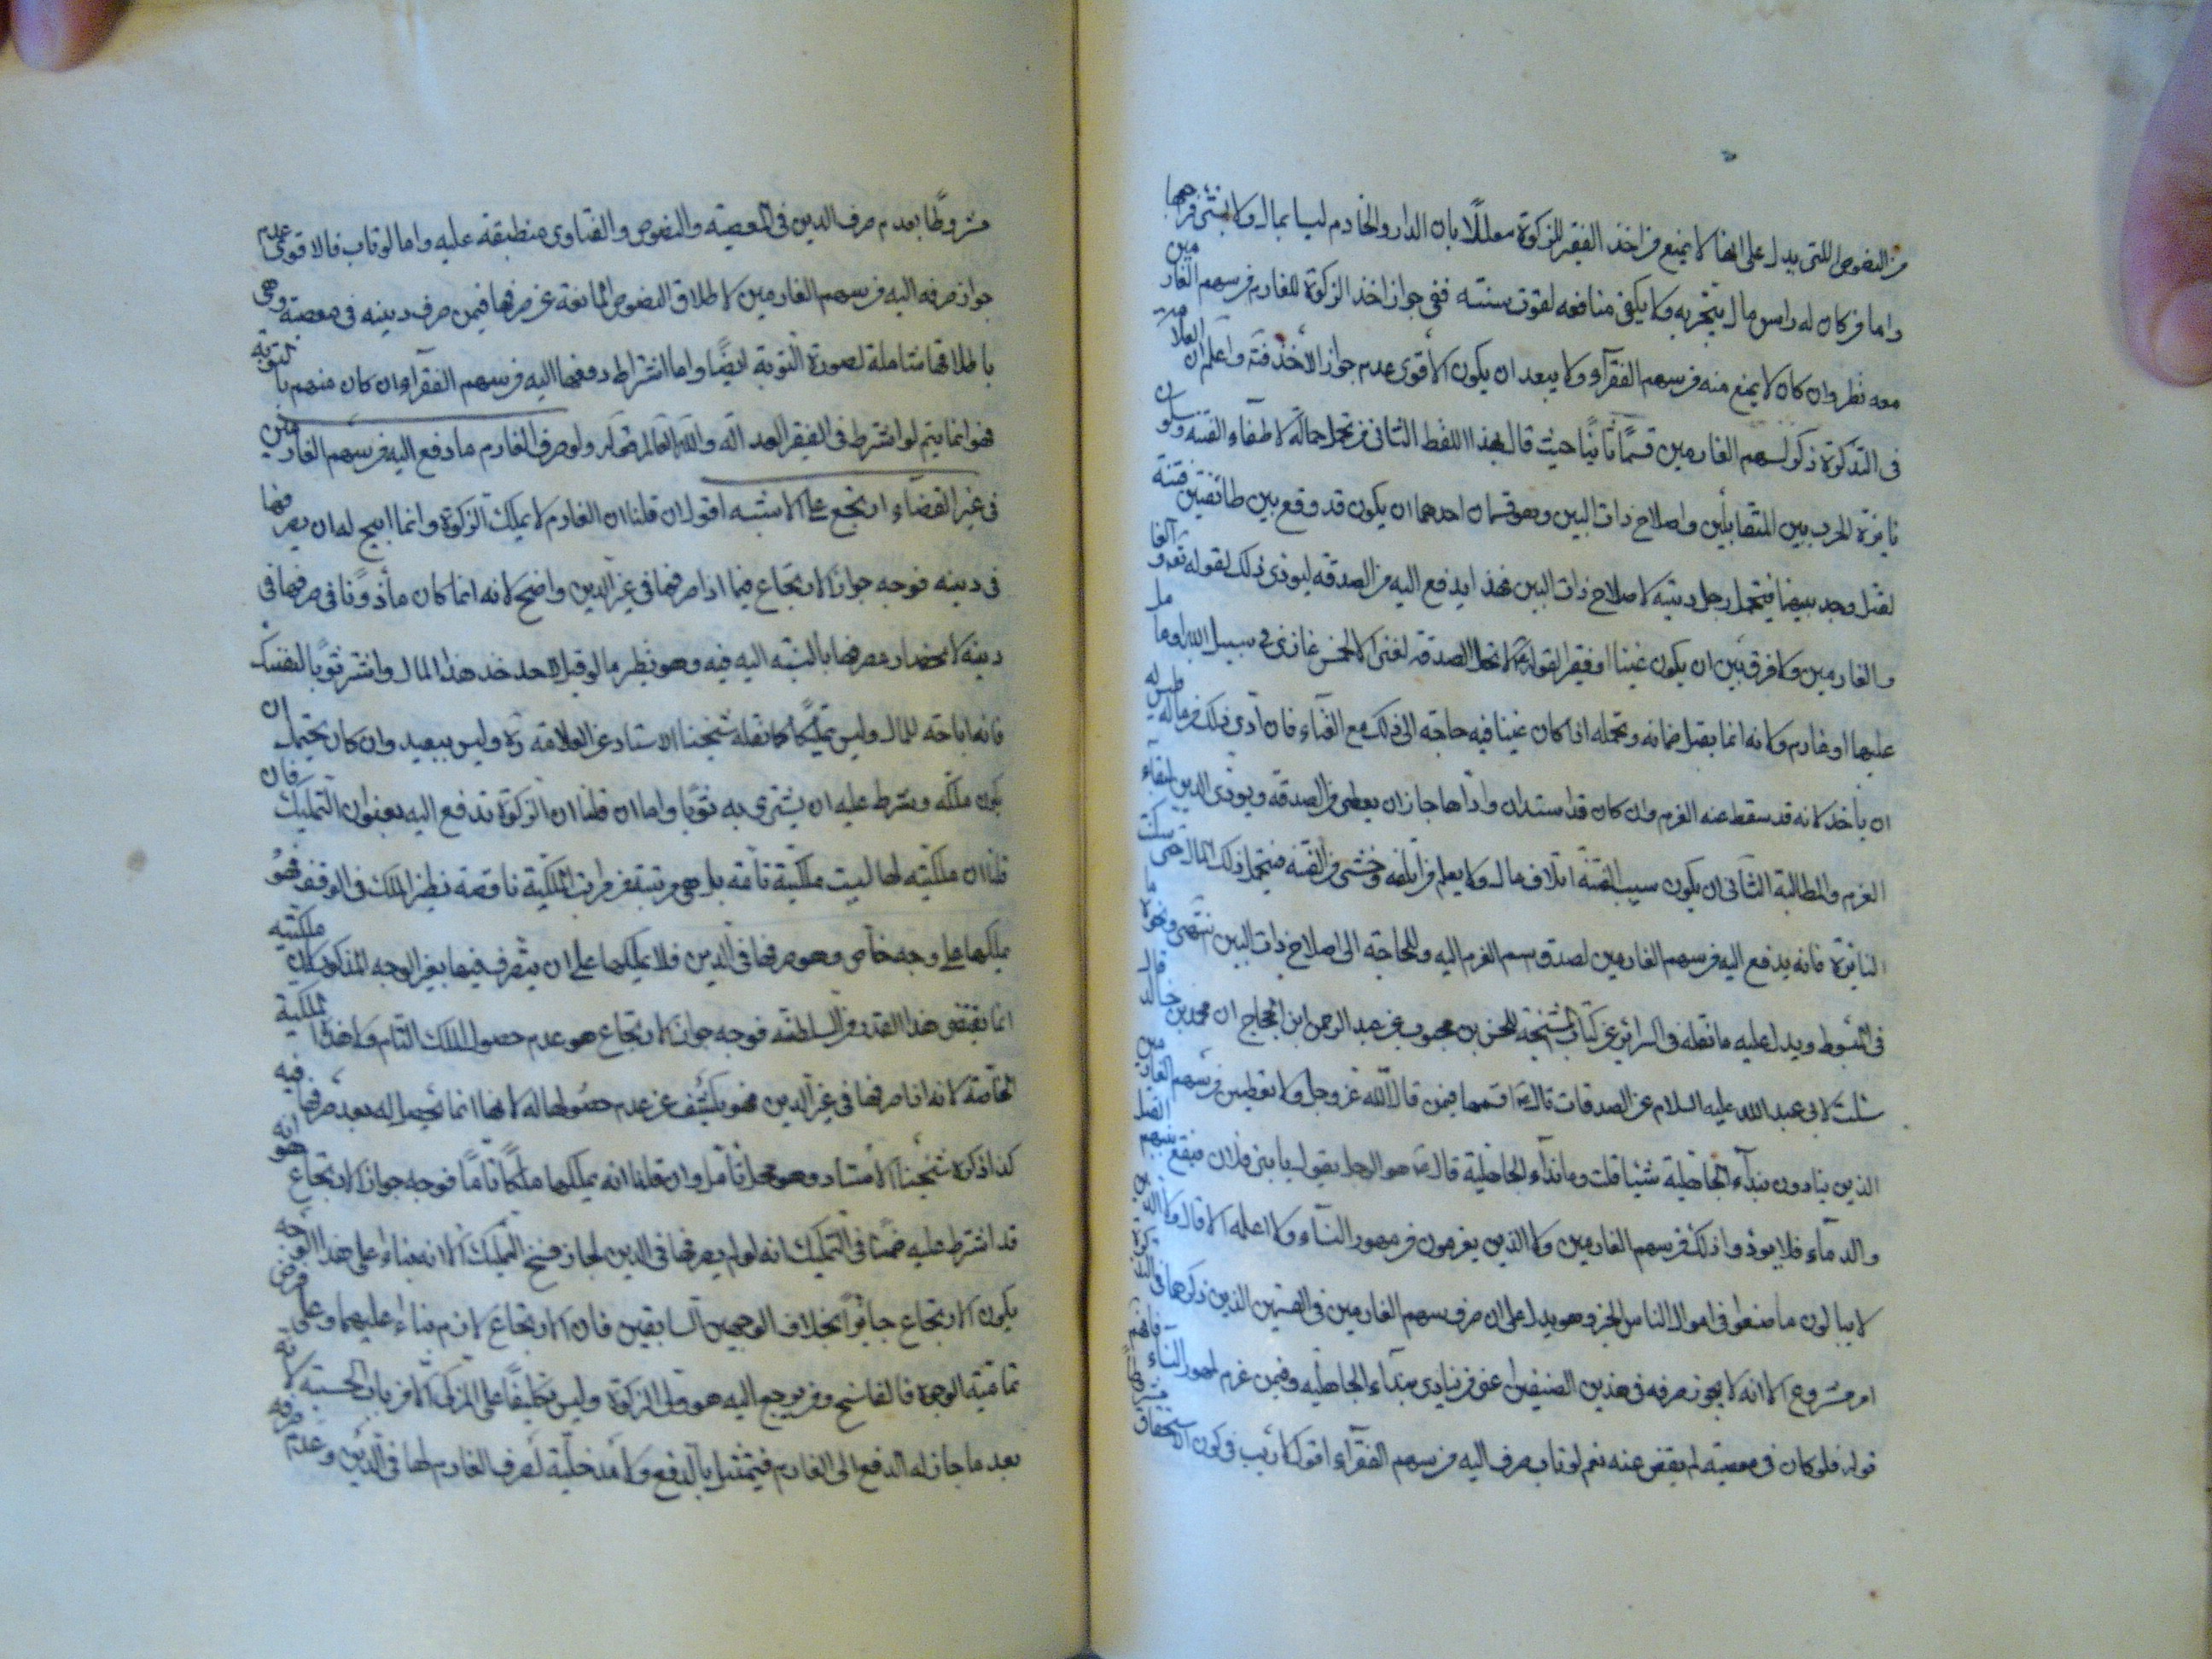 من النصوص اللتى يدل على انها لا يمنع من اخذ الفقير للزكوة معللًا بان الدار والخادم ليسا بمال ولا
واما من كان له راس مال يتجر به ولا يكفى منافعه لقوت سنته ففى جواز اخذ الزكوة للغارم من سهم الغار مين
معه نظر وان كان لا يمنع منه من سهم الفقرآء ولا يبعد ان يكون الأقوى عدم جواز الأخذ فتَه واعلم ان العلامة
فى التذكرة ذكر لسهم الغارمين قسمًا ثانيًا حيث قال بهذا اللفظ الثانى من تحمل حمالة لاطفاء الفتنة و
نايرة الحرب بين المتقابلين واصلاح ذات البين وهو قسمان احدهما ان يكون قد وقع بين طائفتين فتنة
لقتل وجد بينهما فيتحمل رجل ديته لاصلاح ذات البين فهذا يدفع اليه من الصدقه ليودى ذلك لقوله تعه و
والغارمين ولا فرق بين ان يكون غنيا او فقيرا لقوله ع لا تحل الصدقه لغنى الا لخمس غاز فى سبيل الله او عامل
عليها او غارم ولانه انما يقبل ضمانه وتحمله اذا كان غنيا فيه حاجة الى ذلك مع الغناء فان ادى ذلك من ماله فليس له
ان يأخذ لانه قد سقط عنه الغرم وان كان قد استدان وادّاها جاز ان يعطى من الصدقه ويودى الدين لبقاء
الغرم والمطالبة الثانى ان يكون سبب الفتنة اتلاف مال ولا يعلم من اتلفه وخشى من الفتنه فيتحمل ذلك المال حتى سكنت
النايرة فانه يدفع اليه من سهم الغارمين لصدق سم الغرم اليه وللحاجة الى اصلاح ذات البين انتهى ونحوه ما
فى المبسوط ويدل عليه ما نقله فى السرائر عن كتاب المشيخة للحسن بن محبوب عن عبد الرحمن ابن الحجاج ان محمد بن خالد قال
سئلت لابى عبد الله عليه السلام عن الصدقات قال ع اقسمها فيمن قال الله عز وجل ولا تعطين من سهم الغارمين
الذين ينادون بنداء الجاهلية شيئا قلت وما نداء الجاهلية قال ع هو الرجل يقول يا بنى فلان فيقع بينهم القتل
والدماء فلا يودوا ذلك من سهم الغارمين ولا الذين يغرمون من مهور النساء ولا اعلمه الا قال ولا الذين
لا يبالون ما صنعوا فى اموال الناس الخبر وهو يدل على ان صرف سهم الغارمين فى القسمين الذين ذكرهما فى التذكرة
امر مشروع الا انه لا يجوز صرفه فى هذين الصنفين اعنى من ينادى بنداء الجاهليه وفيمن غرم لمهور النساء
قوله فلو كان فى معصية لم يقض عنه نعم لو تاب صرف اليه من سهم الفقرآء اقول لا ريب فى كون الاستحقاق
مشروطًا بعدم صرف الدين فى المعصيه والنصوص والفتاوى منطبقة عليه واما لو تاب فالاقوى عدم
جواز صرفه اليه من سهم الغارمين لاطلاق النصوص المانعة عن صرفها فيمن صرف دينه فى معصية وهى
باطلاقها شاملة لصورة التوبة ايضًا واما اشتراط دفعها اليه من سهم الفقرآء ان كان منهم بالتوبه
فهو انما يتم لو اشترط فى الفقير العدالة والله العالم قوله ولو صرف الغارم ما دفع اليه من سهم الغارمين
فى غير القضآء ارتجع على الاشبه اقول ان قلنا ان الغارم لا يملك الزكوة وانما ابيح له ان يصرفها
فى دينه فوجه جواز الارتجاع فيما اذا صرفها فى غير الدين واضح لانه انما كان مأذونًا فى صرفها فى
دينه لانحصار مصرفها بالنسبة اليه فيه وهو نظير ما لو قيل لاحد خذ هذا المال واشتر ثوبًا لنفسك
فانه اباحة للمال وليس تمليكًا كما نقله شيخنا الاستاد عن العلامة ره وليس ببعيد وان كان يحتمل ان
يكون ملّكه وشرط عليه ان يشترى به ثوبًا واما ان قلنا ان الزكوة تدفع اليه بعنوان التمليك فان
قلنا ان ملكيته لها ليست ملكية تامّة بل هى مرتبة من مراتب الملكية ناقصة نظير الملك فى الوقف فهو
يملكها على وجه خاص وهو صرفها فى الدين فلا يملكها على ان يتصرف فيها بغير الوجه المذكور لان ملكيته
انما يقتضى هذا القدر من السلطنة فوجه جواز الارتجاع هو عدم حصول الملك التام ولا هذه الملكية
الخاصّة لانه اذا صرفها فى غير الدين فهو يكشف عن عدم حصولها له لانها انما تحصل له بعد صرفها فيه
كذا ذكره شيخنا الاستاد وهو محل تأمل وان قلنا انه يملكها ملكًا تامًا فوجه جواز الارتجاع هو انه
قد اشترط عليه ضمنًا فى التمليك انه لو لم يصرفها فى الدين لجاز فسخ التمليك الا انه بناء على هذا الوجه
يكون الارتجاع جائزًا بخلاف الوجهين السابقين فان الارتجاع لازم بناء عليهما وعلى فرض
تمامية الوجوه فالفاسخ ومن يرجع اليه هو ولى الزكوة وليس تكليفًا على المزكى الا من باب الحسبة لانه
بعد ما جاز له الدفع الى الغارم فيمتثل بالدفع ولا مدخلية لصرف الغارم لها فى الدين وعدم صرفه